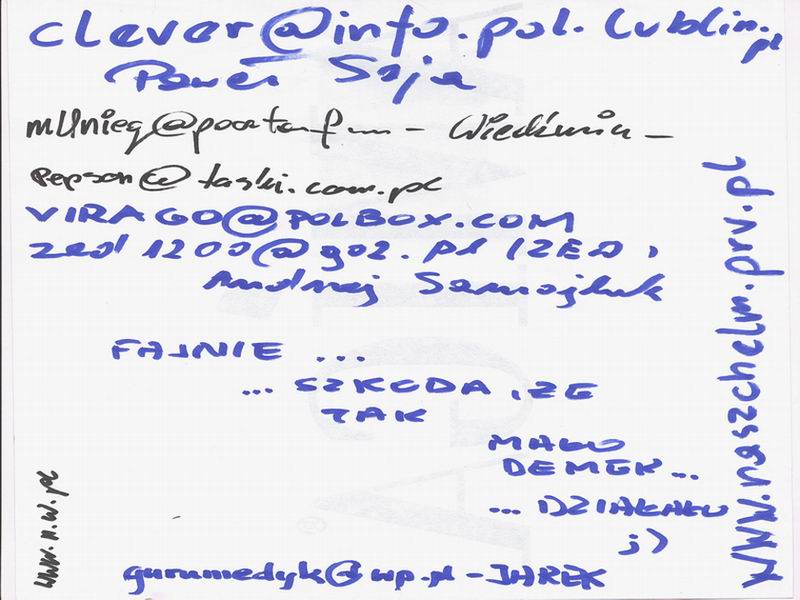 clever@info.pol.lublin.pl
Paweł Soja
pepson@taski.com.pl
VIRAGO@POLBOX.COM
zed1200@go2.pl (ZED)
Andrzej Samojluk
FAJNIE ...
... SZKODA, ŻE
TAK
MAŁO
DEMEK...
... DZIAŁAŁO
;)
gurumedyk@wp.pl - JAREK
www.n.w.pl
www.naszchelm.prv.pl